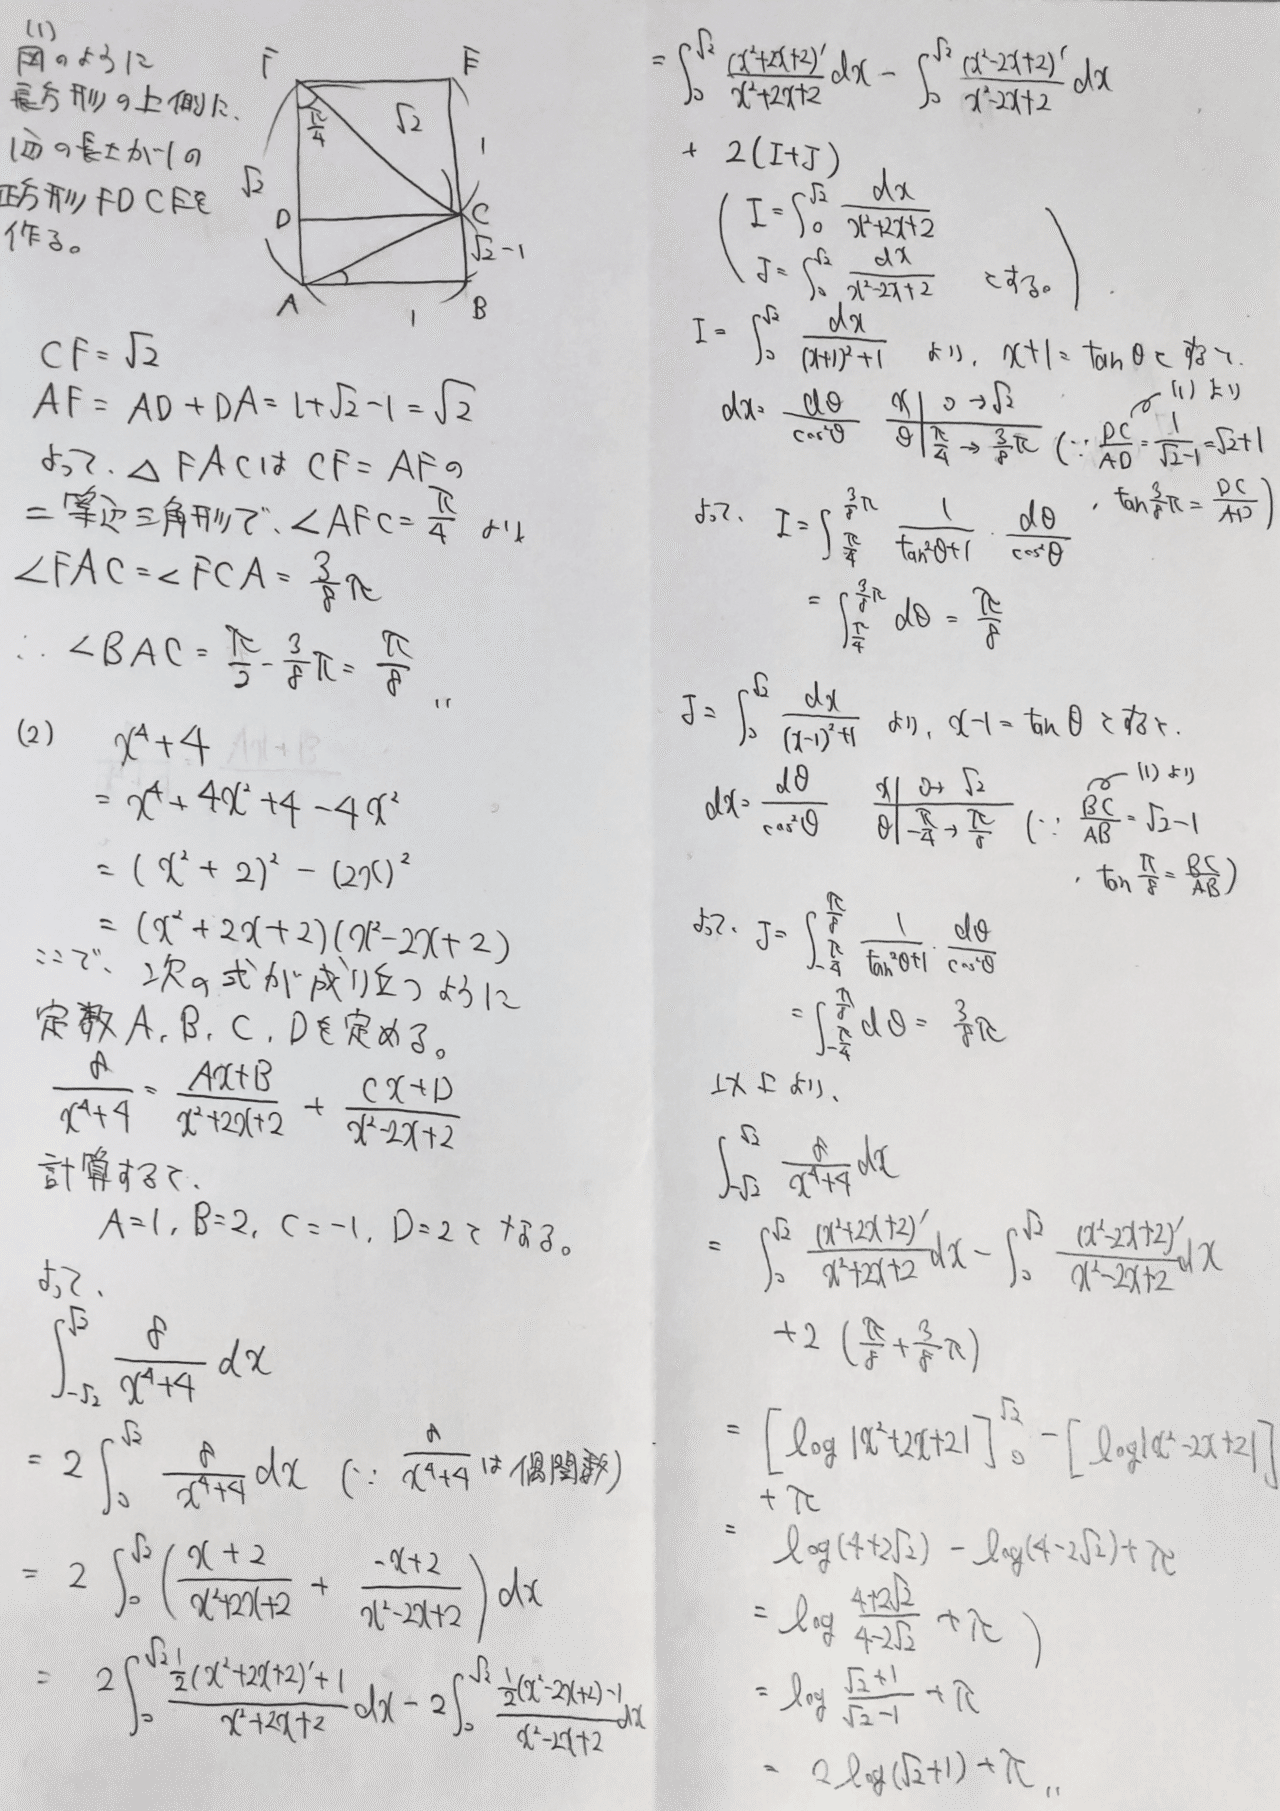 (1)
図のように
長方形の上側に、
1辺の長さが1の
正方形FDCEを
作る。
F E
π/4 √2 1
√2
D C
√2-1
A 1 B
CF=√2
AF= AD+DA=1+√2-1=√2
よって、△FACはCF=AFの
二等辺三角形で、∠AFC=π/4より
∠FAC=∠FCA=3/8π
∴ ∠BAC=π/2-3/8π=π/8〃
(2) x⁴+4
= x⁴+4x²+4-4x²
= (x²+2)²-(2x)²
= (x²+2x+2)(x²-2x+2)
ここで、次の式が成り立つように
定数A,B,C,Dを定める。
8/(x⁴+4) = (Ax+B)/(x²+2x+2) + (Cx+D)/(x²-2x+2)
計算すると、
A=1, B=2, C=-1, D=2となる。
よって、
∫_{-√2}^{√2} 8/(x⁴+4) dx
= 2∫_0^{√2} 8/(x⁴+4) dx (∵ 8/(x⁴+4)は偶関数)
= 2∫_0^{√2} ((x+2)/(x²+2x+2) + (-x+2)/(x²-2x+2)) dx
= 2∫_0^{√2} (1/2(x²+2x+2)'+1)/(x²+2x+2) dx - 2∫_0^{√2} (1/2(x²-2x+2)-1)/(x²-2x+2) dx
= ∫_0^{√2} (x²+2x+2)'/(x²+2x+2) dx - ∫_0^{√2} (x²-2x+2)'/(x²-2x+2) dx
+ 2(I+J)
(I=∫_0^{√2} dx/(x²+2x+2)
J=∫_0^{√2} dx/(x²-2x+2) とする。)
I=∫_0^{√2} dx/((x+1)²+1) より、x+1=tanθとすると、
dx=dθ/cos²θ x|0→√2 θ|π/4→3/8π (∵ DC/AD=1/(√2-1)=√2+1 (1)より
, tan3/8π=DC/AD)
よって、I=∫_{π/4}^{3/8π} 1/(tan²θ+1)・dθ/cos²θ
= ∫_{π/4}^{3/8π} dθ = π/8
J=∫_0^{√2} dx/((x-1)²+1) より、x-1=tanθとすると、
dx=dθ/cos²θ x|0→√2 θ|-π/4→π/8 (∵ BC/AB=√2-1 (1)より
, tanπ/8=BC/AB)
よって、J=∫_{-π/4}^{π/8} 1/(tan²θ+1)・dθ/cos²θ
= ∫_{-π/4}^{π/8} dθ = 3/8π
以上より、
∫_{-√2}^{√2} 8/(x⁴+4) dx
= ∫_0^{√2} (x²+2x+2)'/(x²+2x+2) dx - ∫_0^{√2} (x²-2x+2)'/(x²-2x+2) dx
+2(π/8+3/8π)
= [log|x²+2x+2|]_0^{√2} - [log|x²-2x+2|]
+π
= log(4+2√2) - log(4-2√2)+π
= log (4+2√2)/(4-2√2) +π
= log (√2+1)/(√2-1) +π
= 2log(√2+1)+π〃